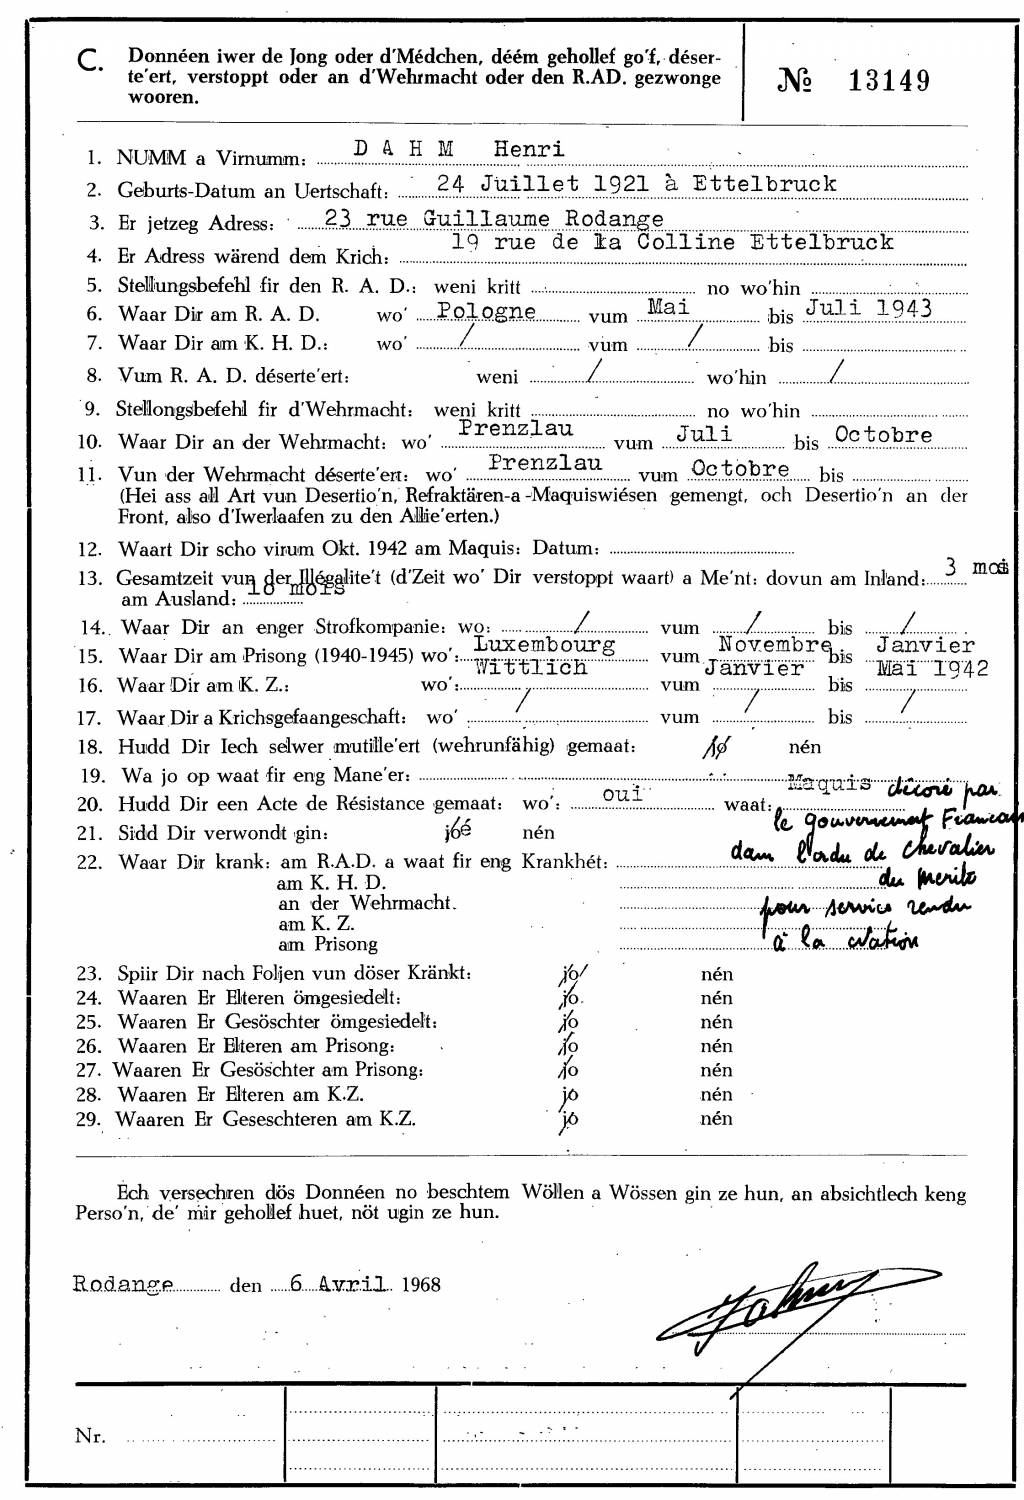 C. Donnéen iwer de Jong oder d'Médchen, déém gehollef go'f, déser-
te'ert, verstoppt oder an d'Wehrmacht oder den R.AD. gezwonge
wooren.
№ 13149
1. NUMM a Virnumm: D A H M Henri
2. Geburts-Datum an Uertschaft: 24 Juillet 1921 à Ettelbruck
3. Er jetzeg Adress: 23 rue Guillaume Rodange
4. Er Adress wärend dem Krich: 19 rue de la Colline Ettelbruck
5. Stellungsbefehl fir den R. A. D.: weni kritt no wo'hin
6. Waar Dir am R. A. D. wo' Pologne vum Mai bis Juli 1943
7. Waar Dir am K. H. D.: wo' / vum / bis
8. Vum R. A. D. déserte'ert: weni / wo'hin /
9. Stellongsbefehl fir d'Wehrmacht: weni kritt no wo'hin
10. Waar Dir an der Wehrmacht: wo' Prenzlau vum Juli bis Octobre
11. Vun der Wehrmacht déserte'ert: wo' Prenzlau vum Octobre bis
(Hei ass all Art vun Desertio'n, Refraktären-a-Maquiswiésen gemengt, och Desertio'n an der
Front, also d'Iwerlaafen zu den Allie'erten.)
12. Waart Dir scho virum Okt. 1942 am Maquis: Datum:
13. Gesamtzeit vun der Illégalite't (d'Zeit wo' Dir verstoppt waart) a Me'nt: dovun am Inland: 3 mois
am Ausland: 18 mois
14. Waar Dir an enger Strofkompanie: wo: / vum / bis /
15. Waar Dir am Prisong (1940-1945) wo': Luxembourg vum Novembre bis Janvier
Wittlich Janvier Mai 1942
16. Waar Dir am K. Z.: wo': vum bis
17. Waar Dir a Krichsgefaangeschaft: wo' / vum / bis /
18. Hudd Dir Iech selwer mutille'ert (wehrunfähig) gemaat: jo nén
19. Wa jo op waat fir eng Mane'er:
20. Hudd Dir een Acte de Résistance gemaat: wo': oui waat: Maquis décoré par
le gouvernement Francais
dans l'ordre de chevalier
du merite
pour service rendu
à la Nation
21. Sidd Dir verwondt gin: jo nén
22. Waar Dir krank: am R.A.D. a waat fir eng Krankhét:
am K. H. D.
an der Wehrmacht.
am K. Z.
am Prisong
23. Spiir Dir nach Foljen vun döser Kränkt: jo nén
24. Waaren Er Elteren ömgesiedelt: jo nén
25. Waaren Er Gesöschter ömgesiedelt: jo nén
26. Waaren Er Elteren am Prisong: jo nén
27. Waaren Er Gesöschter am Prisong: jo nén
28. Waaren Er Elteren am K.Z. jo nén
29. Waaren Er Geseschteren am K.Z. jo nén
Ech versechren dös Donnéen no beschtem Wöllen a Wössen gin ze hun, an absichtlech keng
Perso'n, de' mir gehollef huet, nöt ugin ze hun.
Rodange den 6 Avril 1968
Nr.